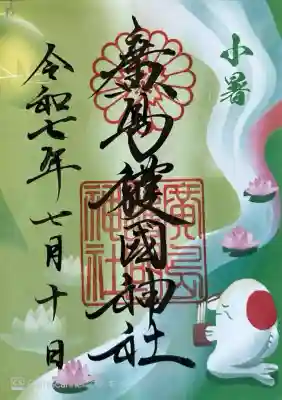 小暑
廣島護國神社
廣島護國神社
令和七年七月十日